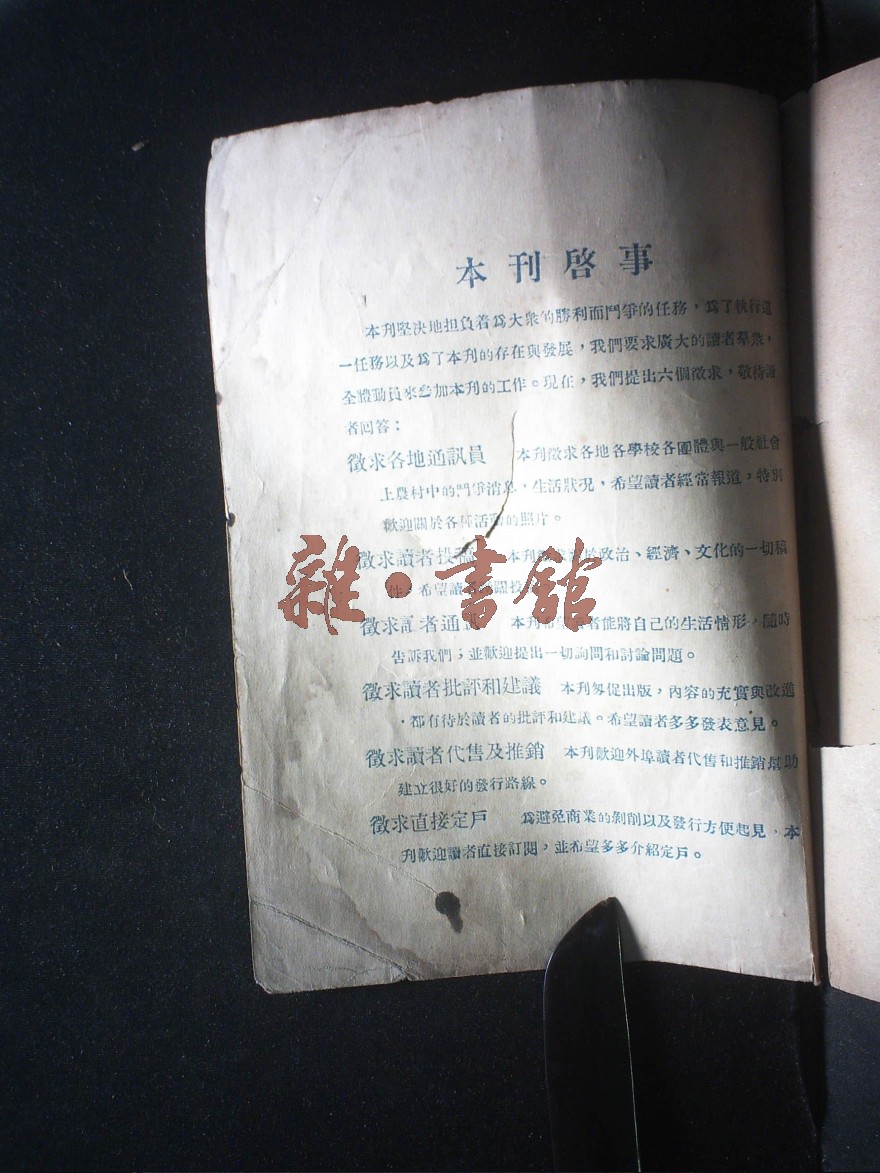 本刊啓事
本刊堅決地担负着爲大衆的勝利而鬥爭的任務，爲了執行這
一任務以及爲了本刊的存在與發展，我們要求廣大的讀者羣衆，
全體動員來參加本刊的工作。現在，我們提出六個徵求，敬待讀
者回答：
徵求各地通訊員　本刊徵求各地各學校各團體與一般社會
上農村中的鬥爭消息，生活狀況，希望讀者經常報道，特別
歡迎關於各種活動的照片。
徵求讀者投稿　本刊政治、經濟、文化的一切稿
件，希望讀者
雜·書館
徵求讀者通　本刊者能將自己的生活情形，隨時
告訴我們；並歡迎提出一切詢問和討論問題。
徵求讀者批評和建議　本刊匆促出版，內容的充實與改進
，都有待於讀者的批評和建議。希望讀者多多發表意見。
徵求讀者代售及推銷　本刊歡迎外埠讀者代售和推銷幫助
建立很好的發行路線。
徵求直接定戶　爲避免商業的剝削以及發行方便起見，本
刊歡迎讀者直接訂閱，並希望多多介紹定戶。